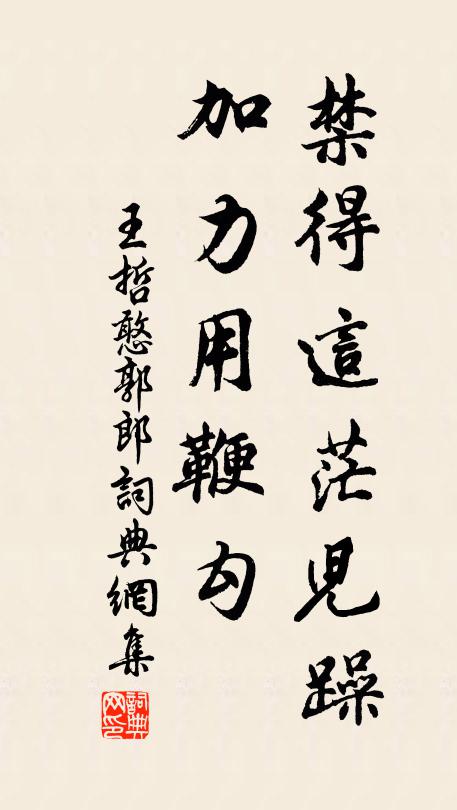 禁得這茫児躁
加力用鞭勾
王哲憨郭郎詞典網集
詞典网印